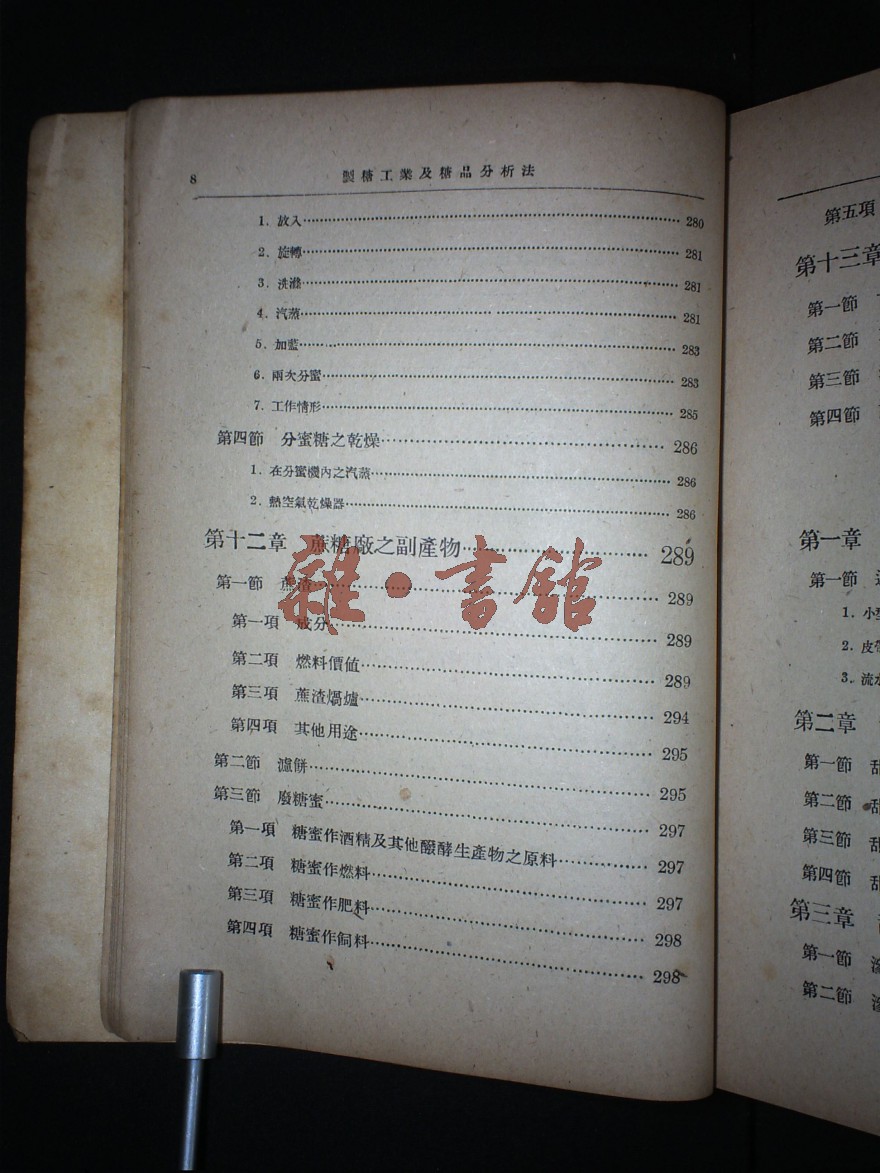 8 製糖工業及糖品分析法
1. 放入 280
2. 旋轉 281
3. 洗滌 281
4. 汽蒸 281
5. 加藍 283
6. 兩次分蜜 283
7. 工作情形 285
第四節 分蜜糖之乾燥 286
1. 在分蜜機內之汽蒸 286
2. 熱空氣乾燥器 286
第十二章 蔗糖廠之副產物 289
第一節 蔗渣 289
第一項 成分 289
第二項 燃料價值 289
第三項 蔗渣焗爐 294
第四項 其他用途 295
第二節 濾餅 295
第三節 廢糖蜜 297
第一項 糖蜜作酒精及其他醱酵生產物之原料 297
第二項 糖蜜作燃料 297
第三項 糖蜜作肥料 298
第四項 糖蜜作飼料 298
雜·書館
第五項
第十三章
第一節
第二節
第三節
第四節
第一章
第一節
1. 小型
2. 皮帶
3. 流水
第二章
第一節 甜
第二節 甜
第三節 甜
第四節 甜
第三章
第一節 滲
第二節 滲